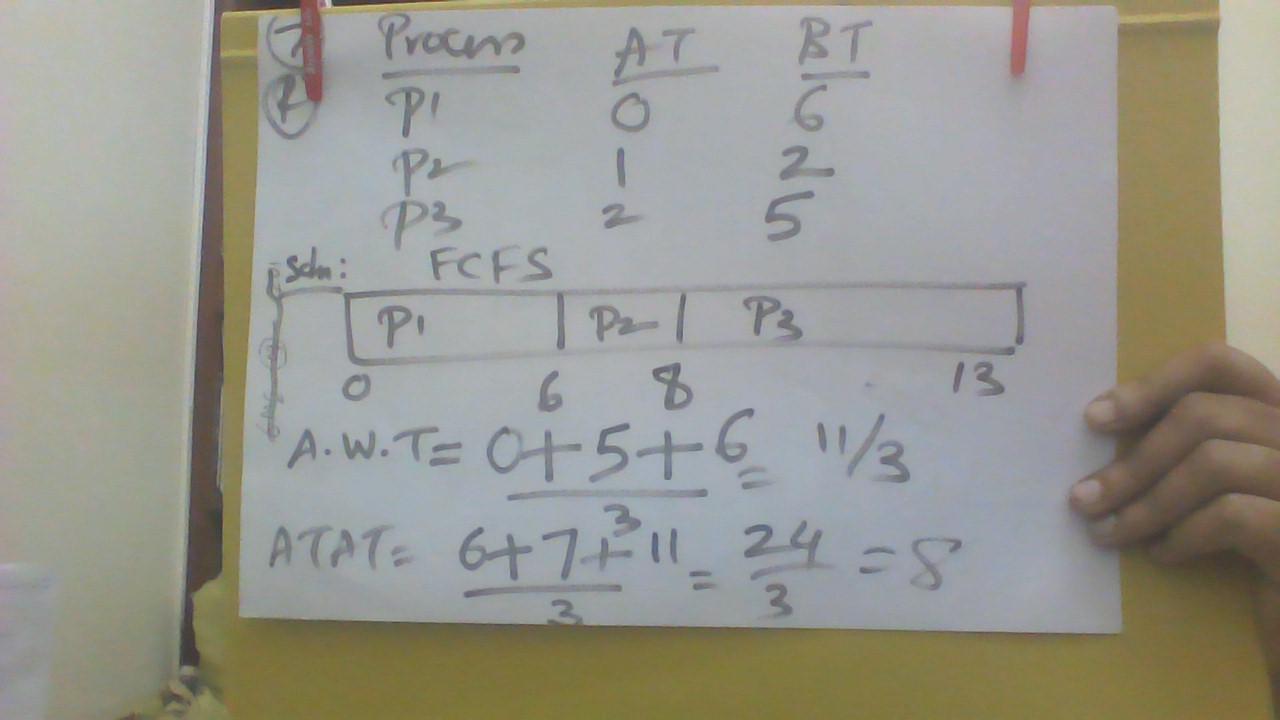 Process AT BT
P1 0 6
P2 1 2
P3 2 5
Soln: FCFS
P1 P2 P3
0 6 8 13
A.W.T= 0+5+6/3 = 11/3
ATAT= 6+7+11/3 = 24/3 = 8